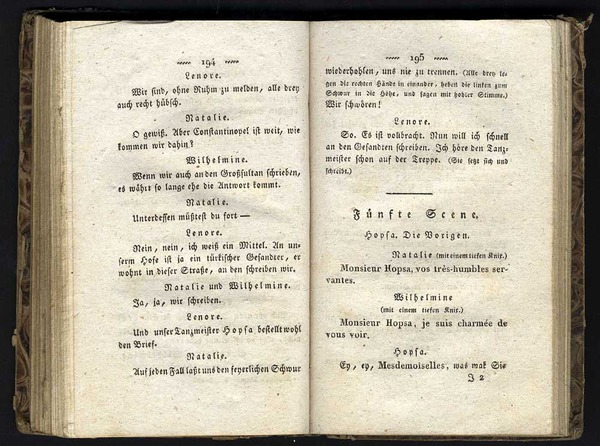 194
Lenore.
Wir sind, ohne Ruhm zu melden, alle drey
auch recht hübsch.
Natalie.
O gewiß. Aber Constantinopel ist weit, wie
kommen wir dahin?
Wilhelmine.
Wenn wir auch an den Großsultan schrieben,
es währt so lange ehe die Antwort kommt.
Natalie.
Unterdessen müßtest du fort —
Lenore.
Nein, nein, ich weiß ein Mittel. An un-
serm Hofe ist ja ein türkischer Gesandter, er
wohnt in dieser Straße, an den schreiben wir.
Natalie und Wilhelmine.
Ja, ja, wir schreiben.
Lenore.
Und unser Tanzmeister Hopsa bestellt wohl
den Brief.
Natalie.
Auf jeden Fall laßt uns den feyerlichen Schwur
195
wiederhohlen, uns nie zu trennen. (Alle drey le-
gen die rechten Hände in einander, heben die linken zum
Schwur in die Höhe, und sagen mit hohler Stimme.)
Wir schwören!
Lenore.
So. Es ist vollbracht. Nun will ich schnell
an den Gesandten schreiben. Ich höre den Tanz-
meister schon auf der Treppe. (Sie setzt sich und
schreibt.)
Fünfte Scene.
Hopsa. Die Vorigen.
Natalie (mit einem tiefen Knix.)
Monsieur Hopsa, vos très-humbles ser-
vantes.
Wilhelmine
(mit einem tiefen Knix.)
Monsieur Hopsa, je suis charmée de
vous voir.
Hopsa.
Ey, ey, Mesdemoiselles, was mak Sie
J 2